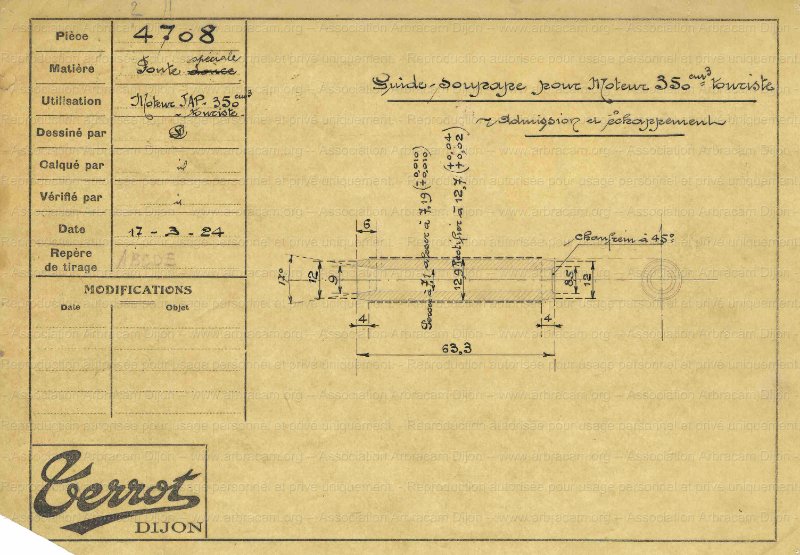 Pièce 4708
spéciale
Matière Fonte douce
Utilisation Moteur JAP. 350 cm3
touriste
Dessiné par
Calqué par
Vérifié par
Date 17 - 3 - 24
Repère
de tirage
MODIFICATIONS
Date Objet
Guide-soupape pour Moteur 350 cm3 touriste
Admission et échappement
aléser à 7,19 (+0,010
Rectifier à 12,7 (+0,04
+0,02)
chanfrein à 45°
6
12
9
12,9
8,5
12
4
4
63,3
Terrot
DIJON
Association Arbracam Dijon - www.arbracam.org
Reproduction autorisée pour usage personnel et privé uniquement